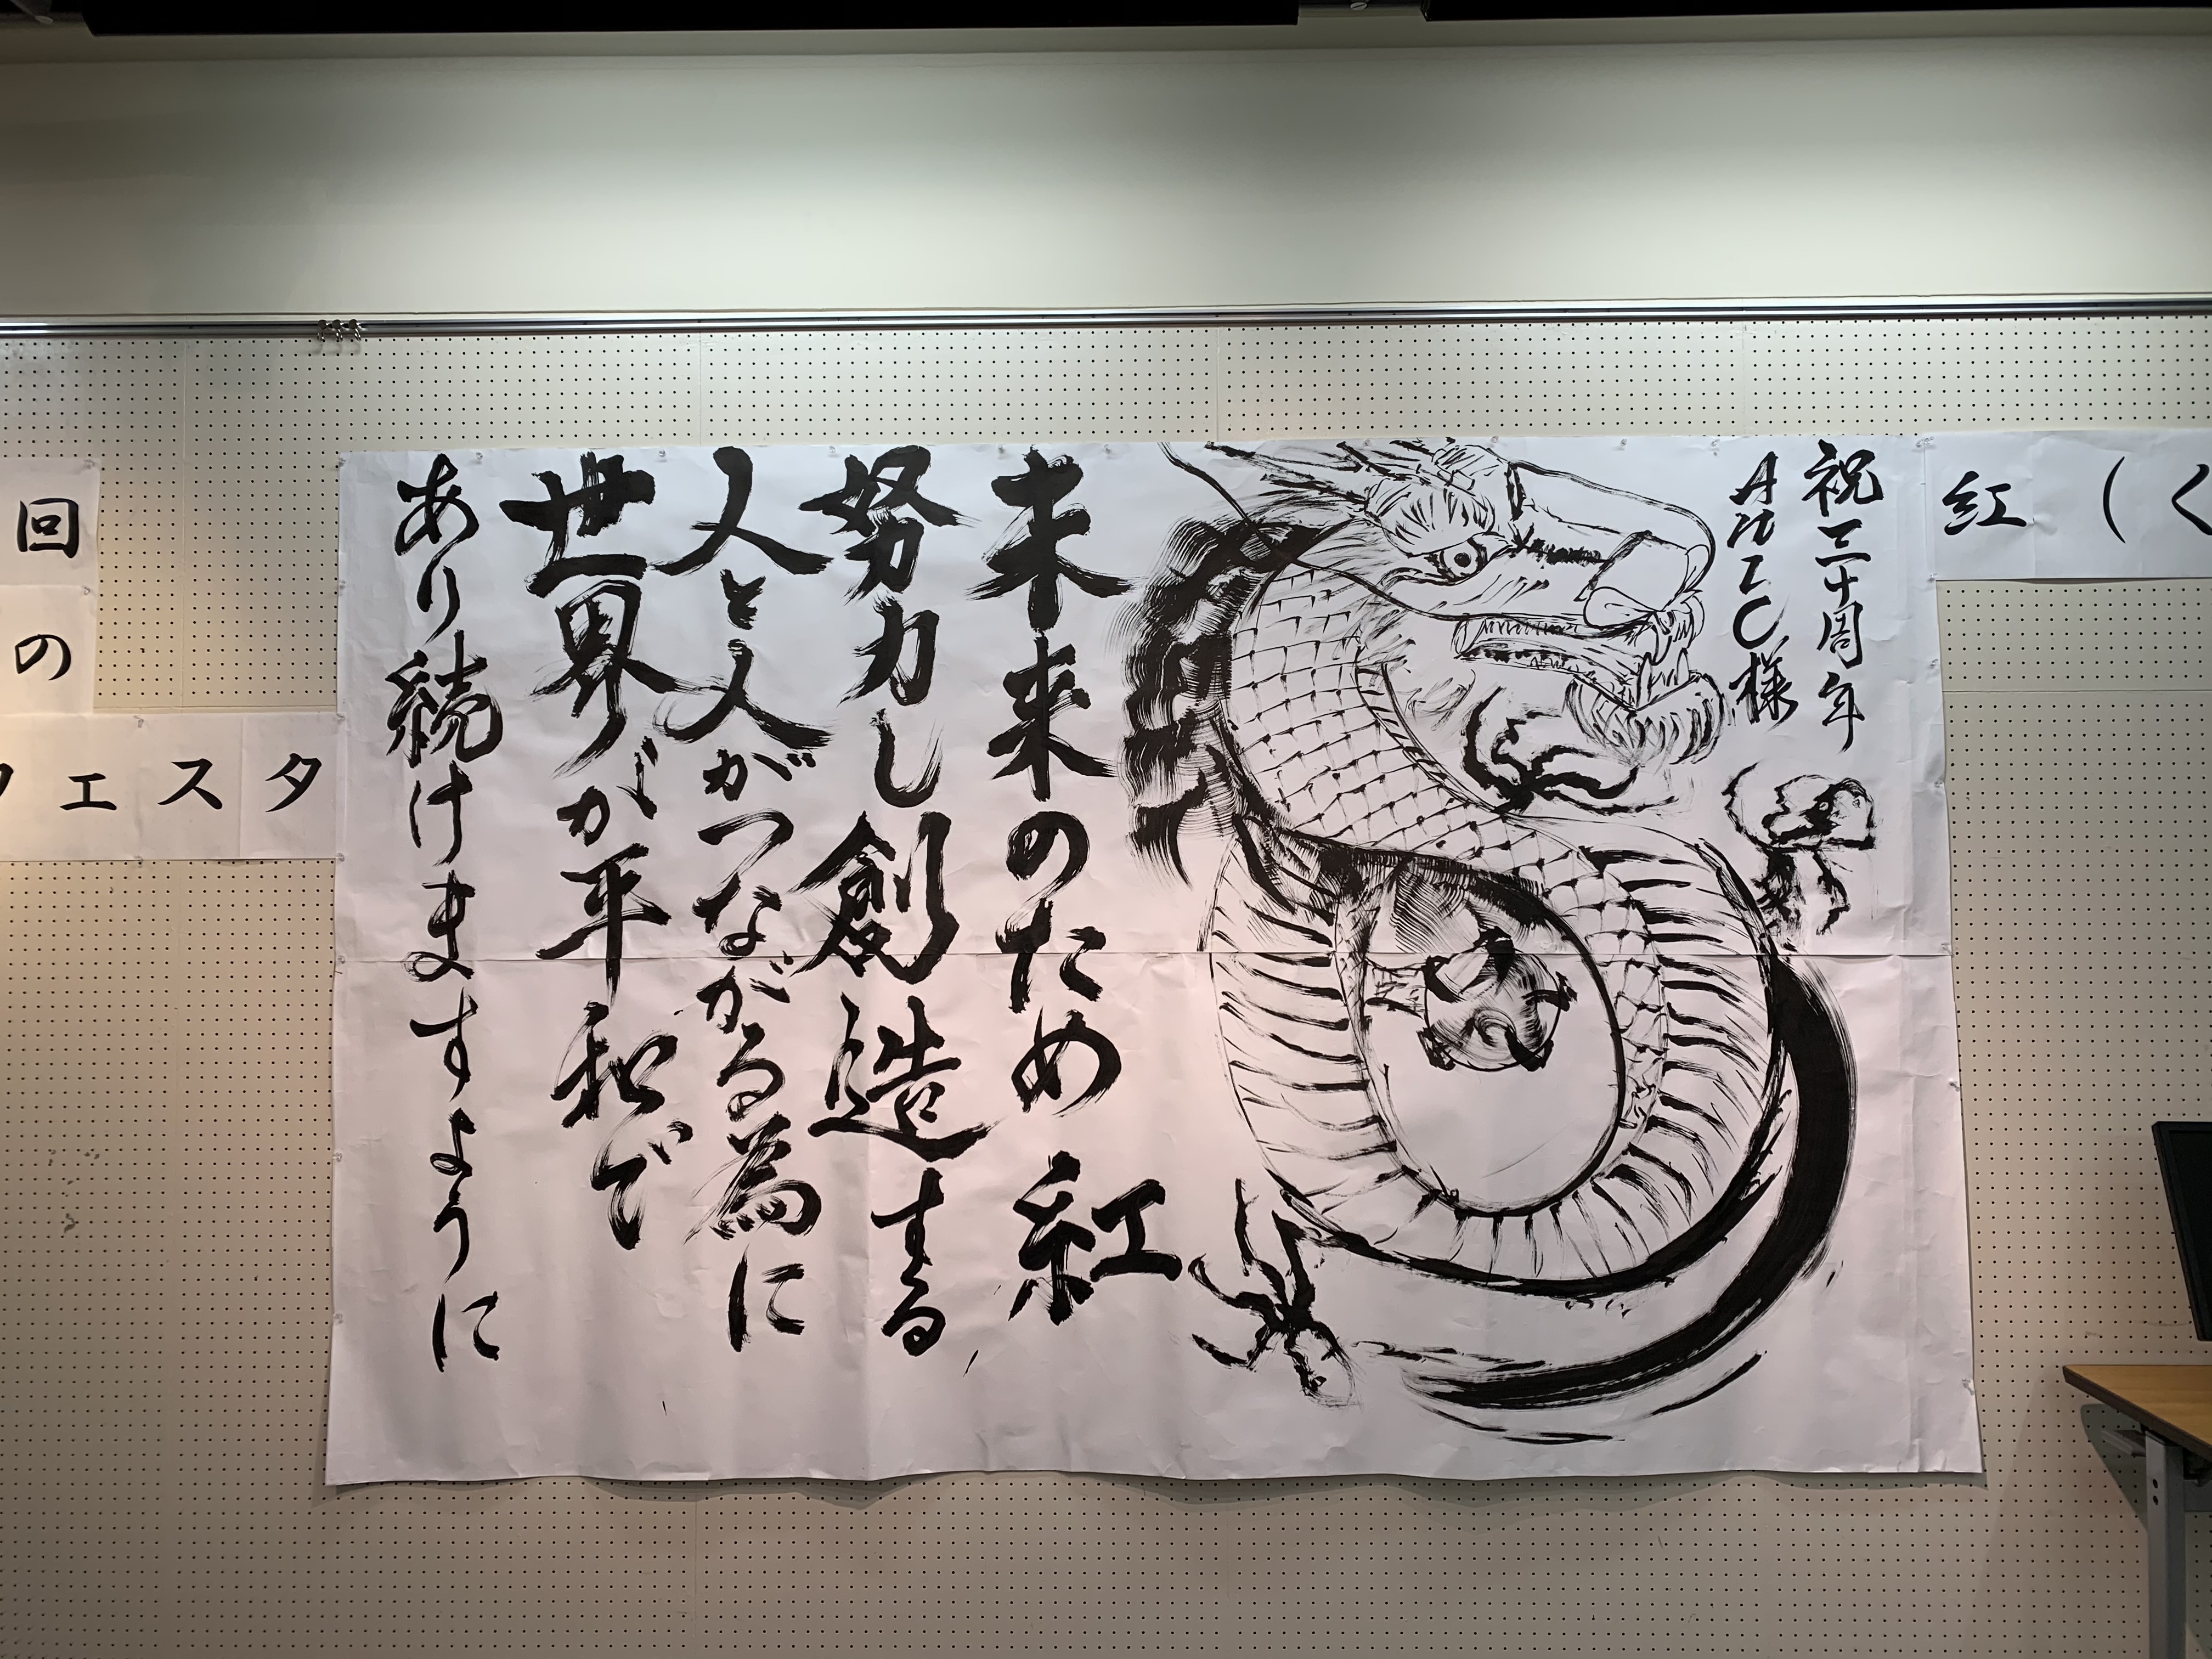 祝三十周年
AMIC様
未来のため 紅
努力し創造する
人と人がつながる為に
世界が平和で
あり続けますように
紅（く
回
の
フェスタ